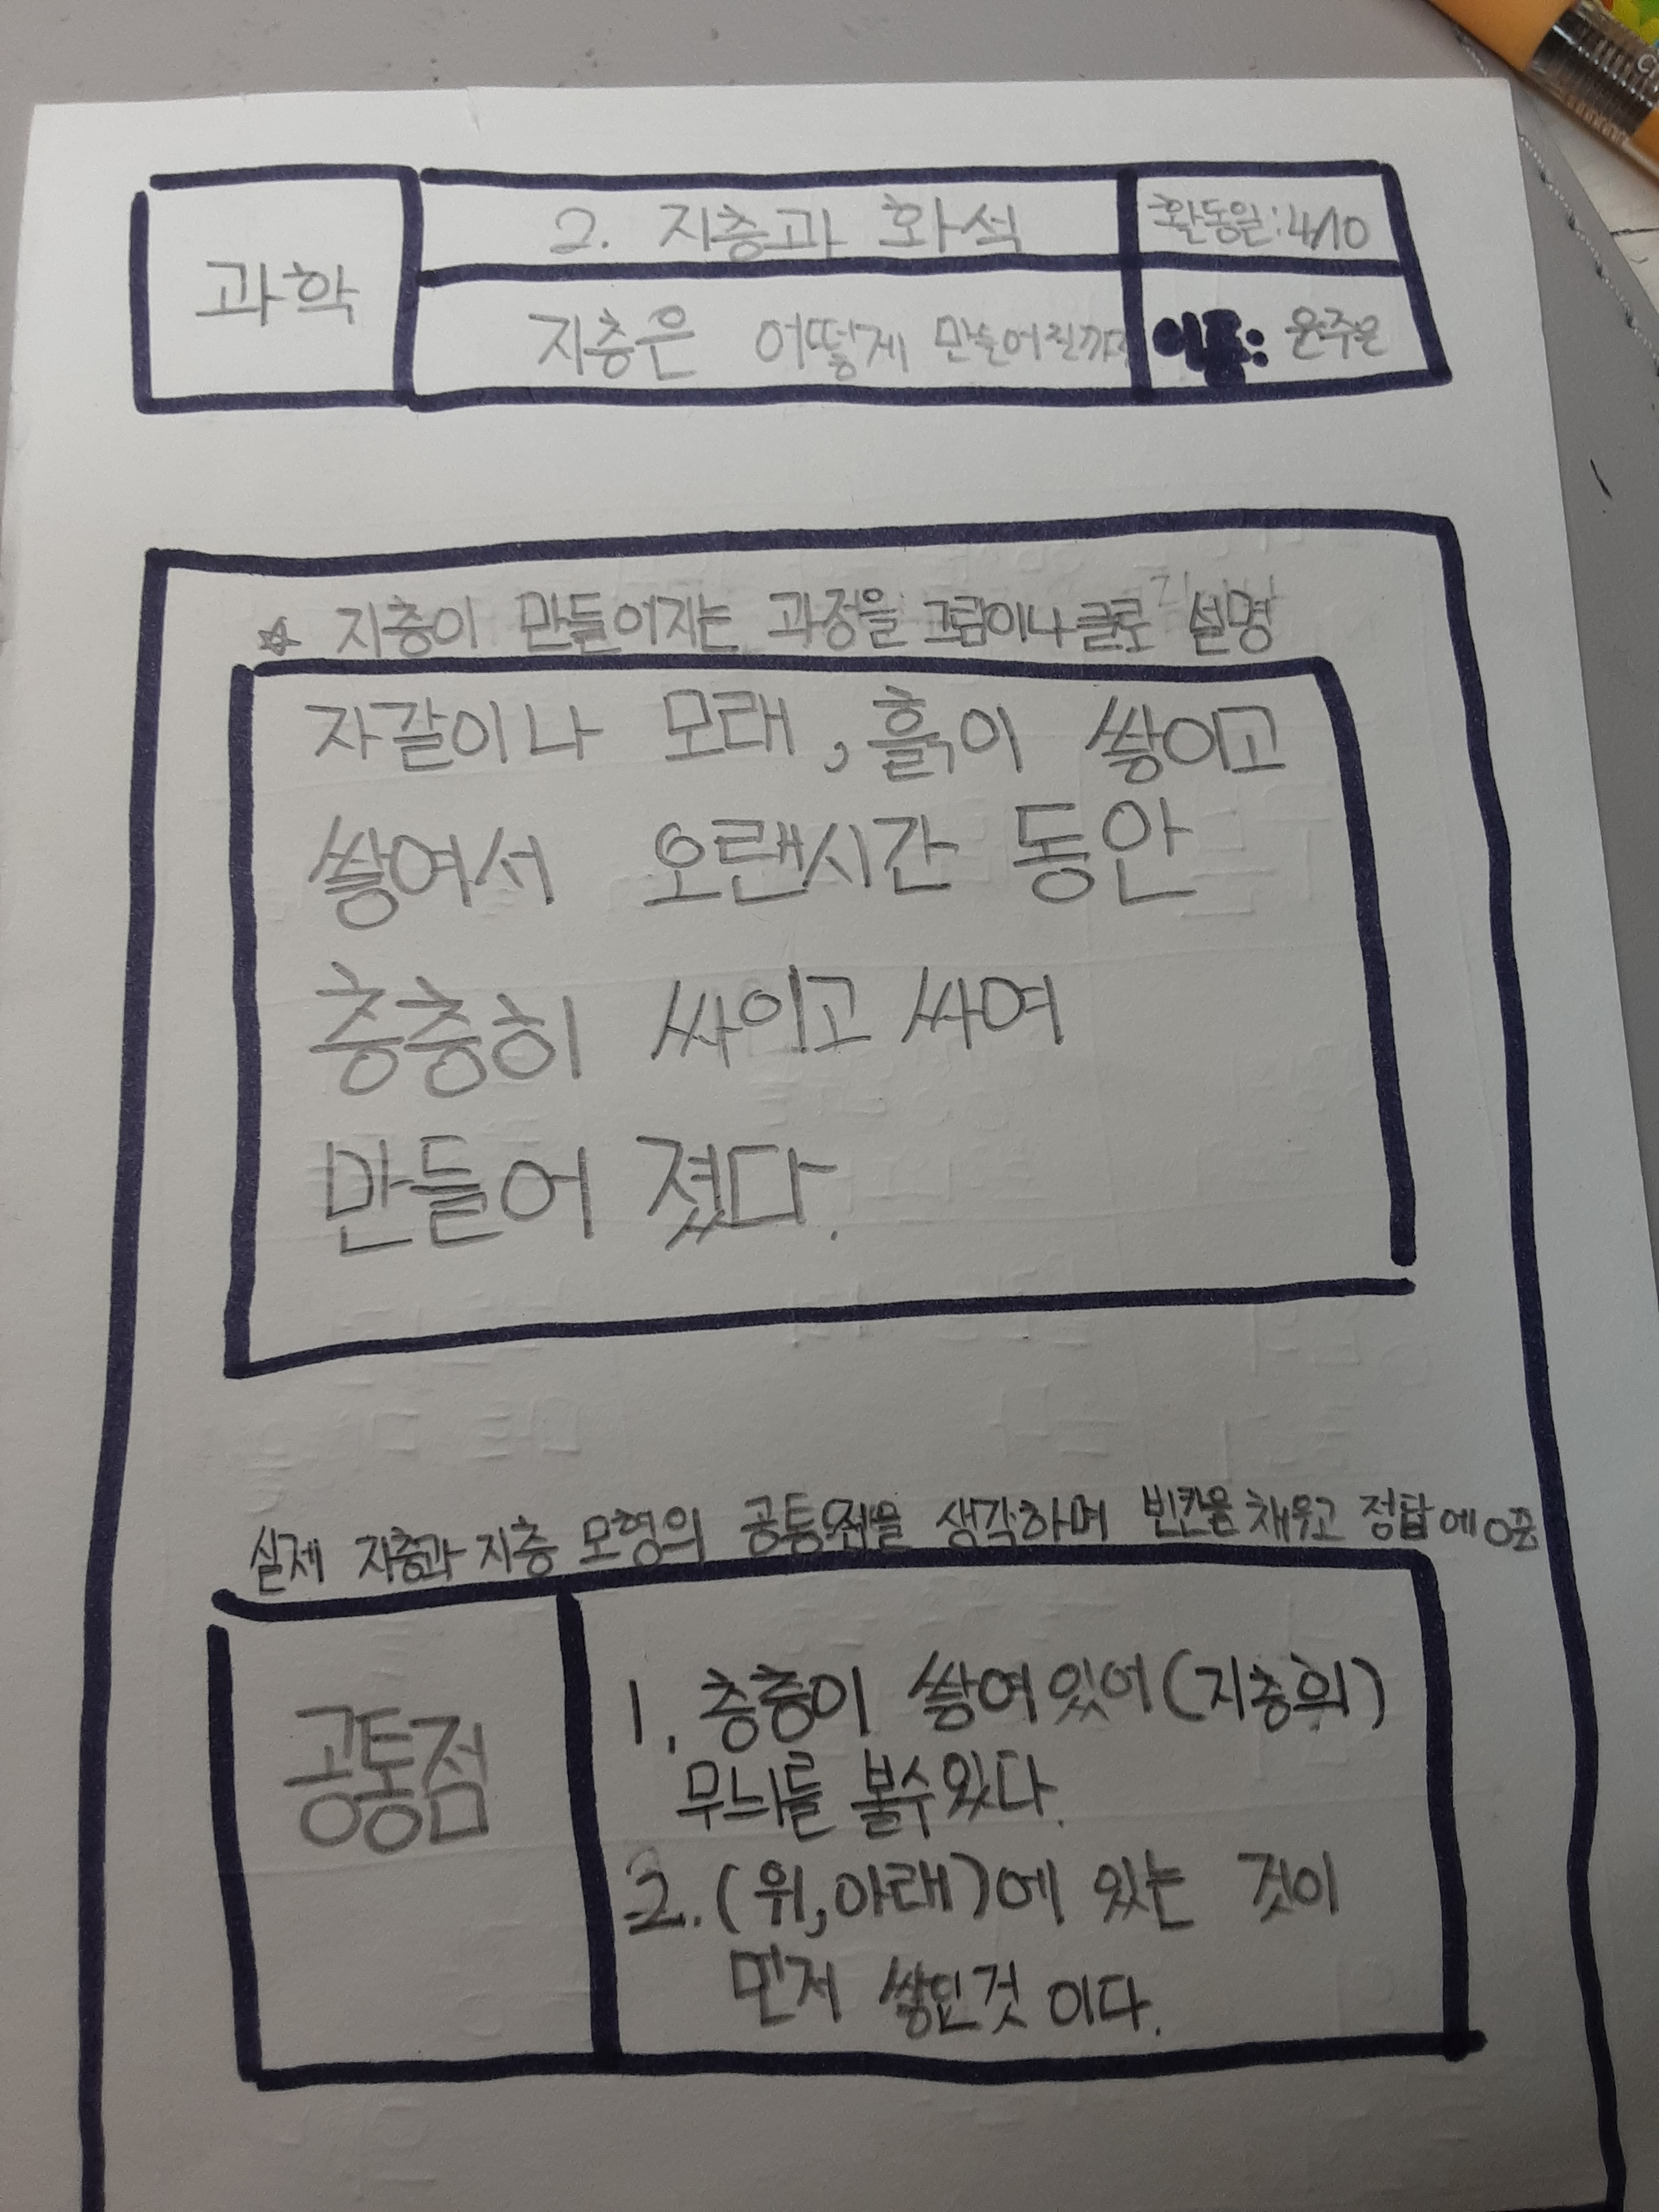 과학
2. 지층과 화석
활동일:4/10
지층은 어떻게 만들어질까?
이름: 윤주은
☆ 지층이 만들어지는 과정을 그림이나 글로 설명
자갈이나 모래, 흙이 쌓이고
쌓여서 오랜시간 동안
층층히 싸이고 싸여
만들어 졌다.
실제 지층과 지층 모형의 공통점을 생각하며 빈칸을 채우고 정답에 O표
공통점
1. 층층이 쌓여있어(지층의)
무늬를 볼수있다.
2. (위,아래)에 있는 것이
먼저 쌓인것 이다.